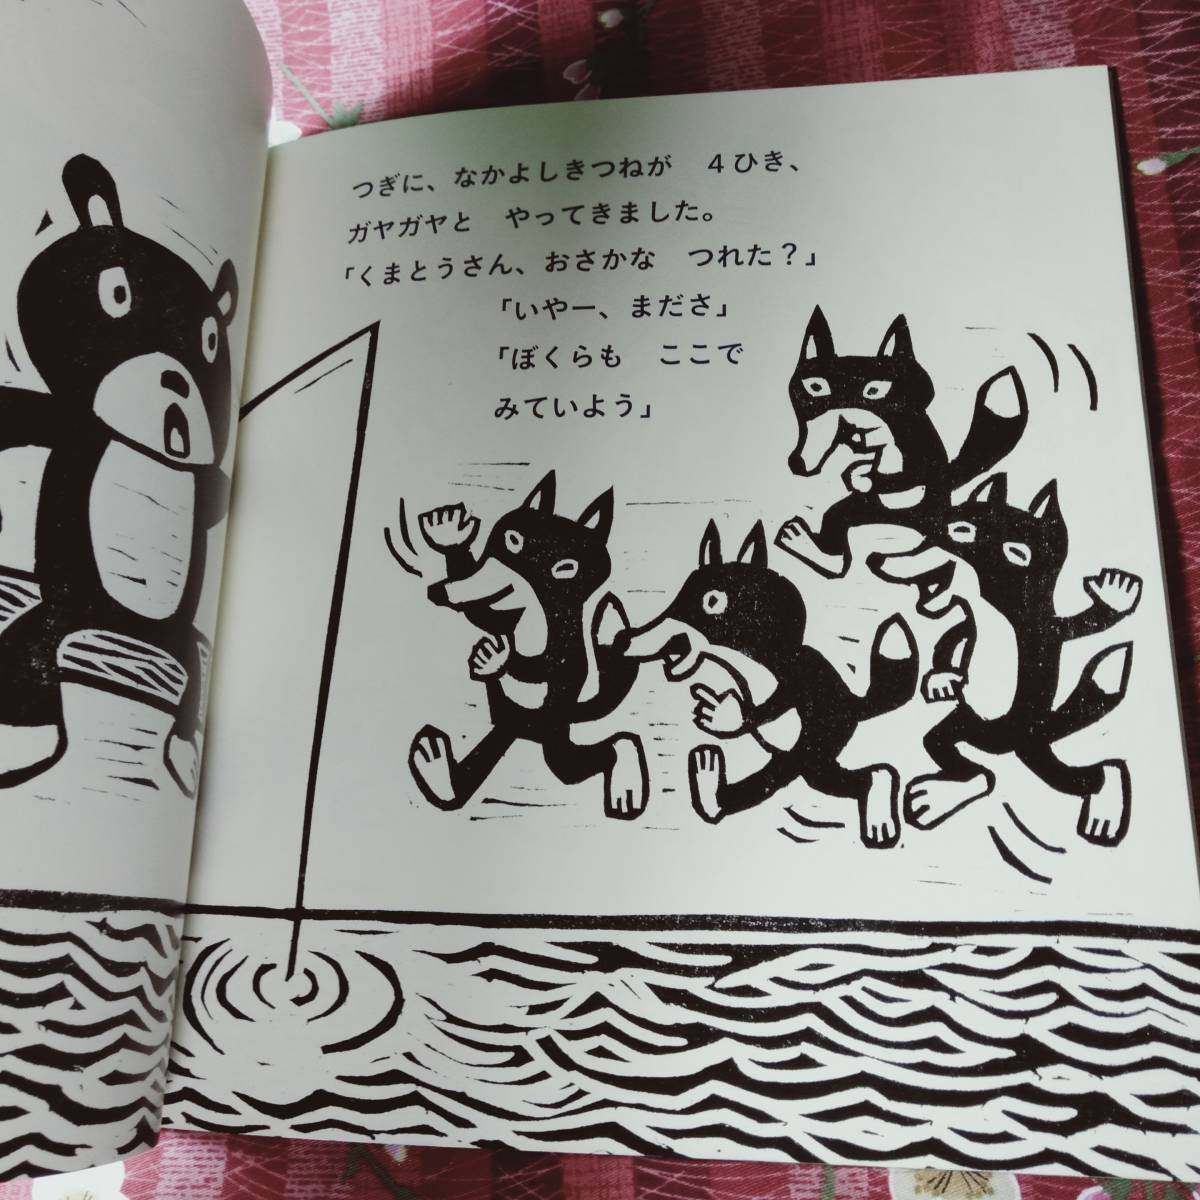 つぎに、なかよしきつねが　４ひき、
ガヤガヤと　やってきました。
「くまとうさん、おさかな　つれた？」
「いやー、まださ」
「ぼくらも　ここで
みていよう」